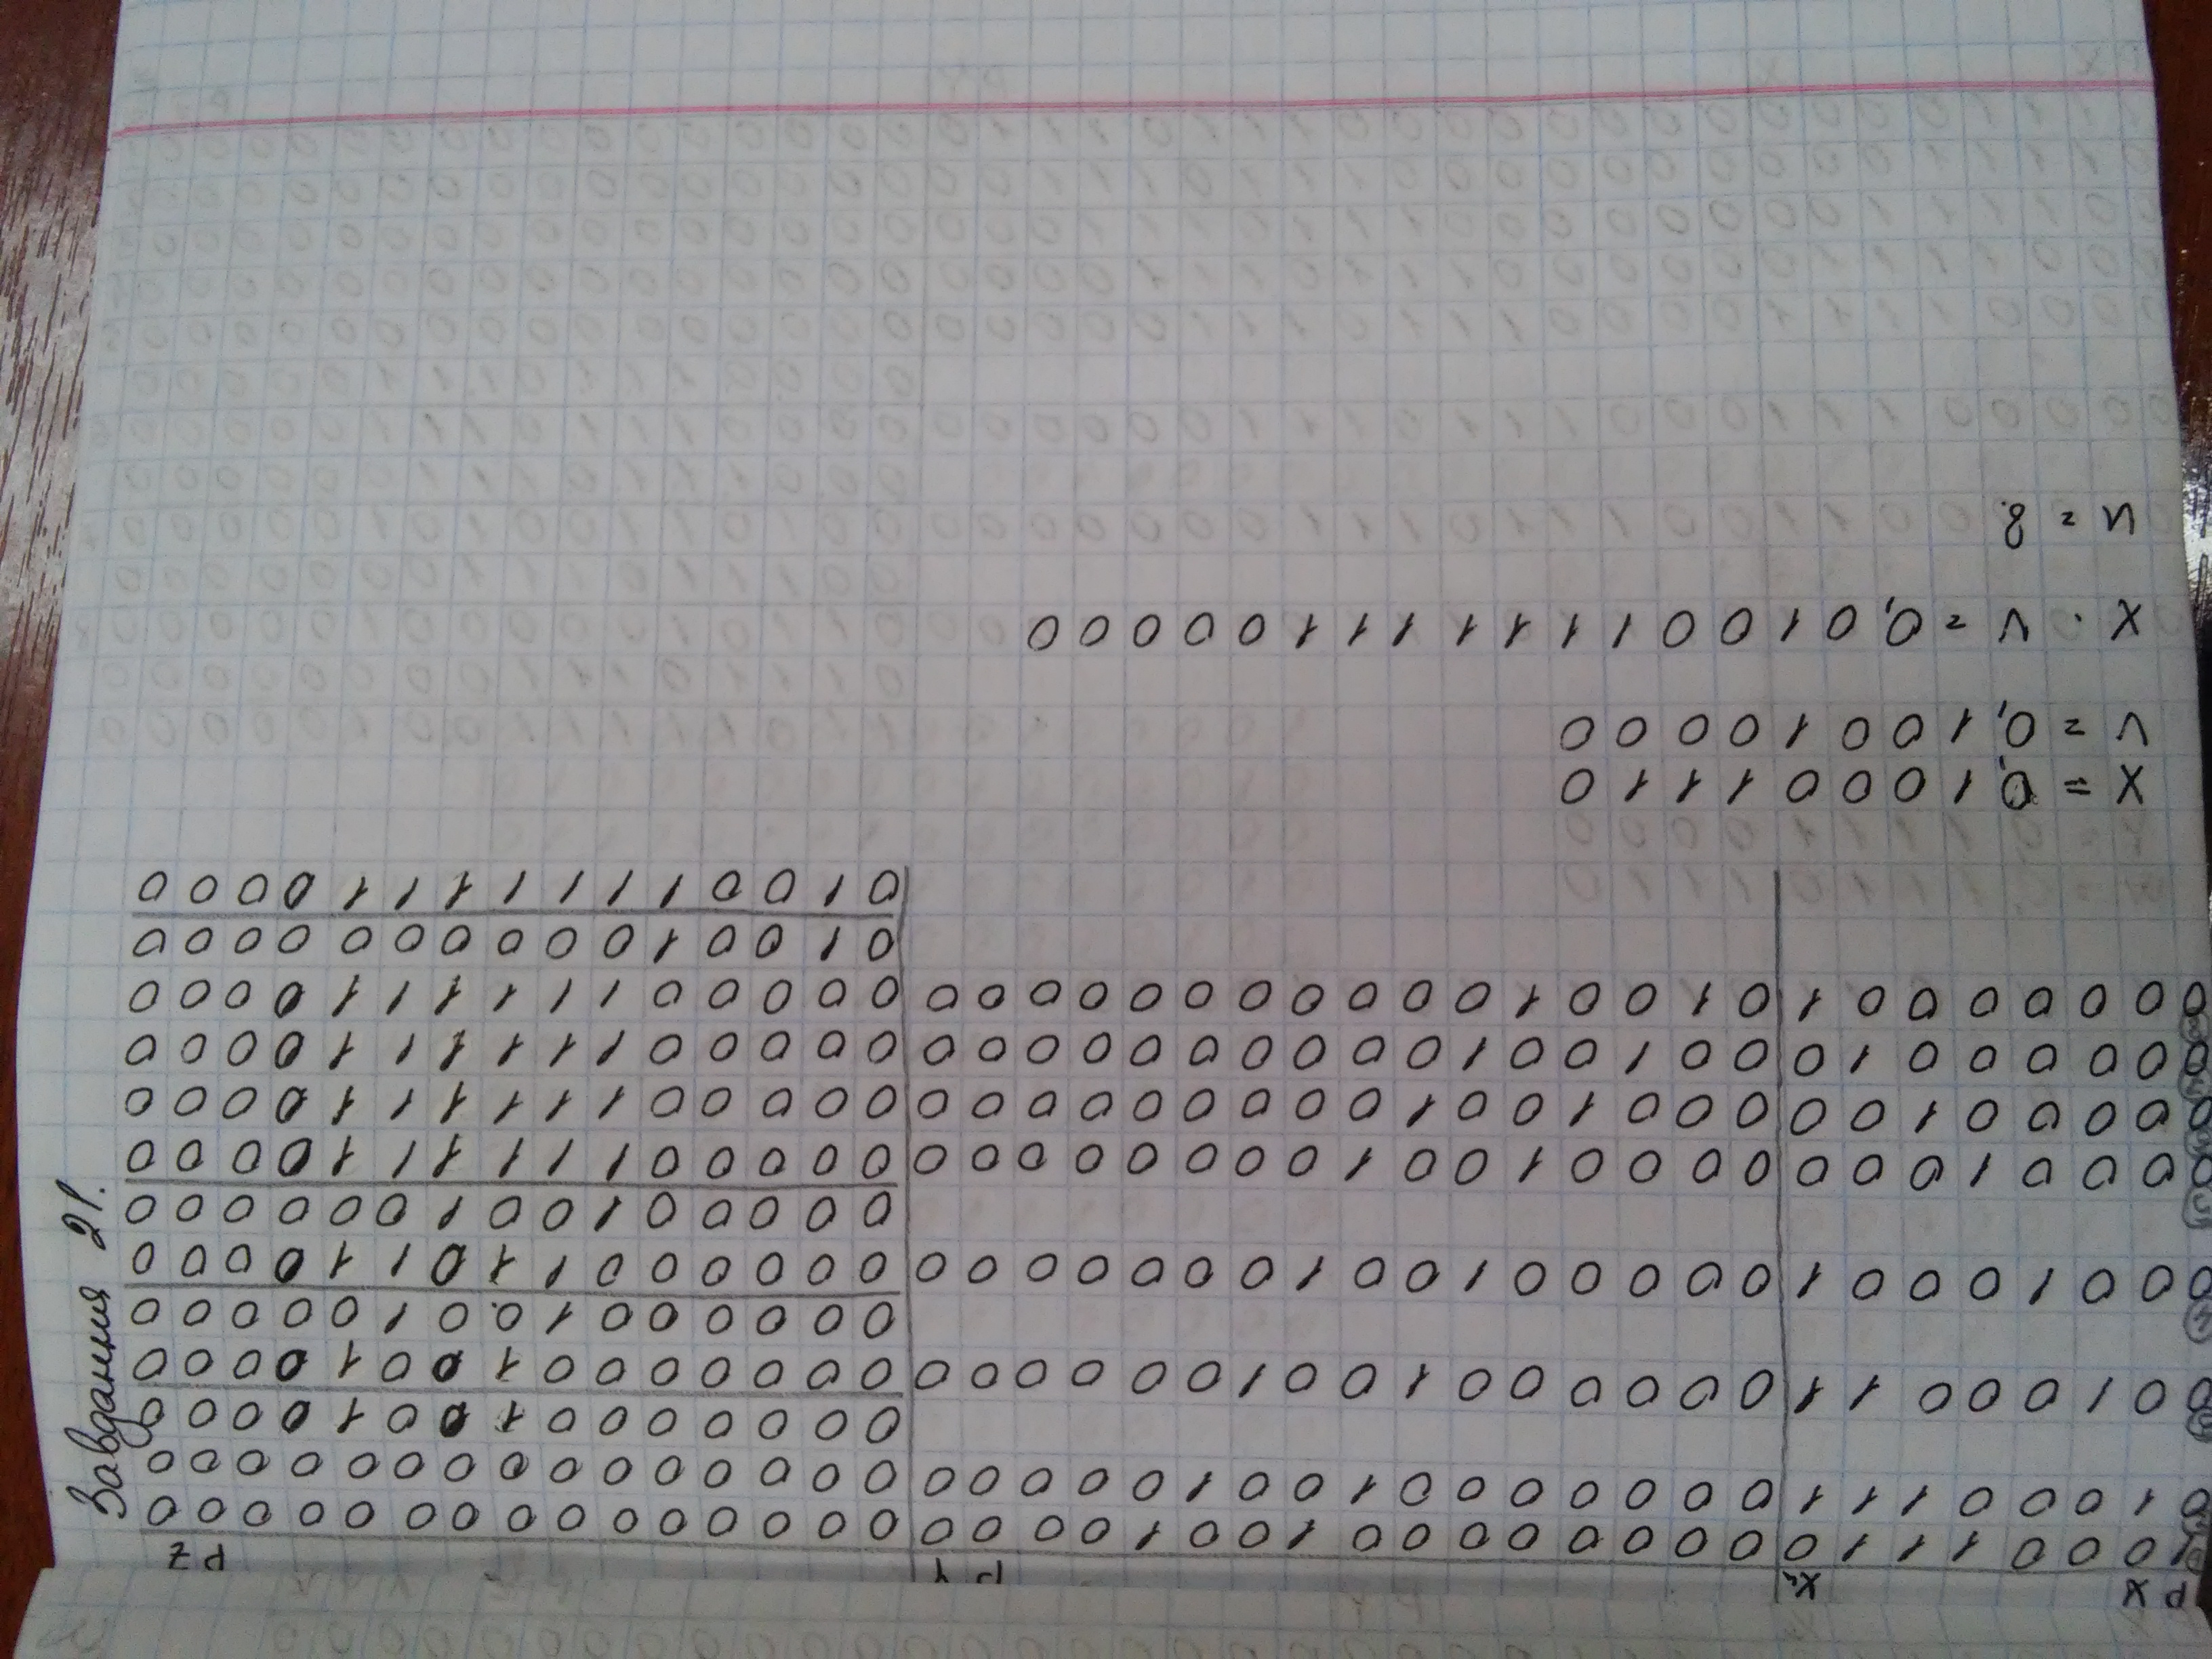 РX Xn РY РZ
1 0 0 0 1 1 1 0 0 0 0 0 0 0 0 0 1 0 0 1 0 0 0 0 0 0 0 0 0 0 0 0 0 0 0 0 0 0 0
0 1 0 0 0 1 1 1 0 0 0 0 0 0 0 1 0 0 1 0 0 0 0 0 0 0 0 0 0 0 0 0 0 0 0 0 0 0 0
0 0 0 0 0 0 0 1 0 0 1 0 0 0 0
0 0 1 0 0 0 1 1 0 0 0 0 0 0 1 0 0 1 0 0 0 0 0 0 0 0 0 0 0 0 0 1 0 0 1 0 0 0 0
0 0 0 0 0 0 1 0 0 1 0 0 0 0 0
0 0 0 1 0 0 0 1 0 0 0 0 0 1 0 0 1 0 0 0 0 0 0 0 0 0 0 0 0 0 1 1 0 1 1 0 0 0 0
0 0 0 0 0 1 0 0 1 0 0 0 0 0 0
0 0 0 0 1 0 0 0 0 0 0 0 1 0 0 1 0 0 0 0 0 0 0 0 0 0 0 0 0 1 1 1 1 1 1 0 0 0 0
0 0 0 0 0 1 0 0 0 0 0 1 0 0 1 0 0 0 0 0 0 0 0 0 0 0 0 0 0 1 1 1 1 1 1 0 0 0 0
0 0 0 0 0 0 1 0 0 0 1 0 0 1 0 0 0 0 0 0 0 0 0 0 0 0 0 0 0 1 1 1 1 1 1 0 0 0 0
0 0 0 0 0 0 0 1 0 1 0 0 1 0 0 0 0 0 0 0 0 0 0 0 0 0 0 0 0 1 1 1 1 1 1 0 0 0 0
0 1 0 0 1 0 0 0 0 0 0 0 0 0 0
0 1 0 0 1 1 1 1 1 1 1 0 0 0 0
Завдання 21.
X = 0,10001110
V = 0,10010000
X · V = 0,0100111111100000
n = 8.